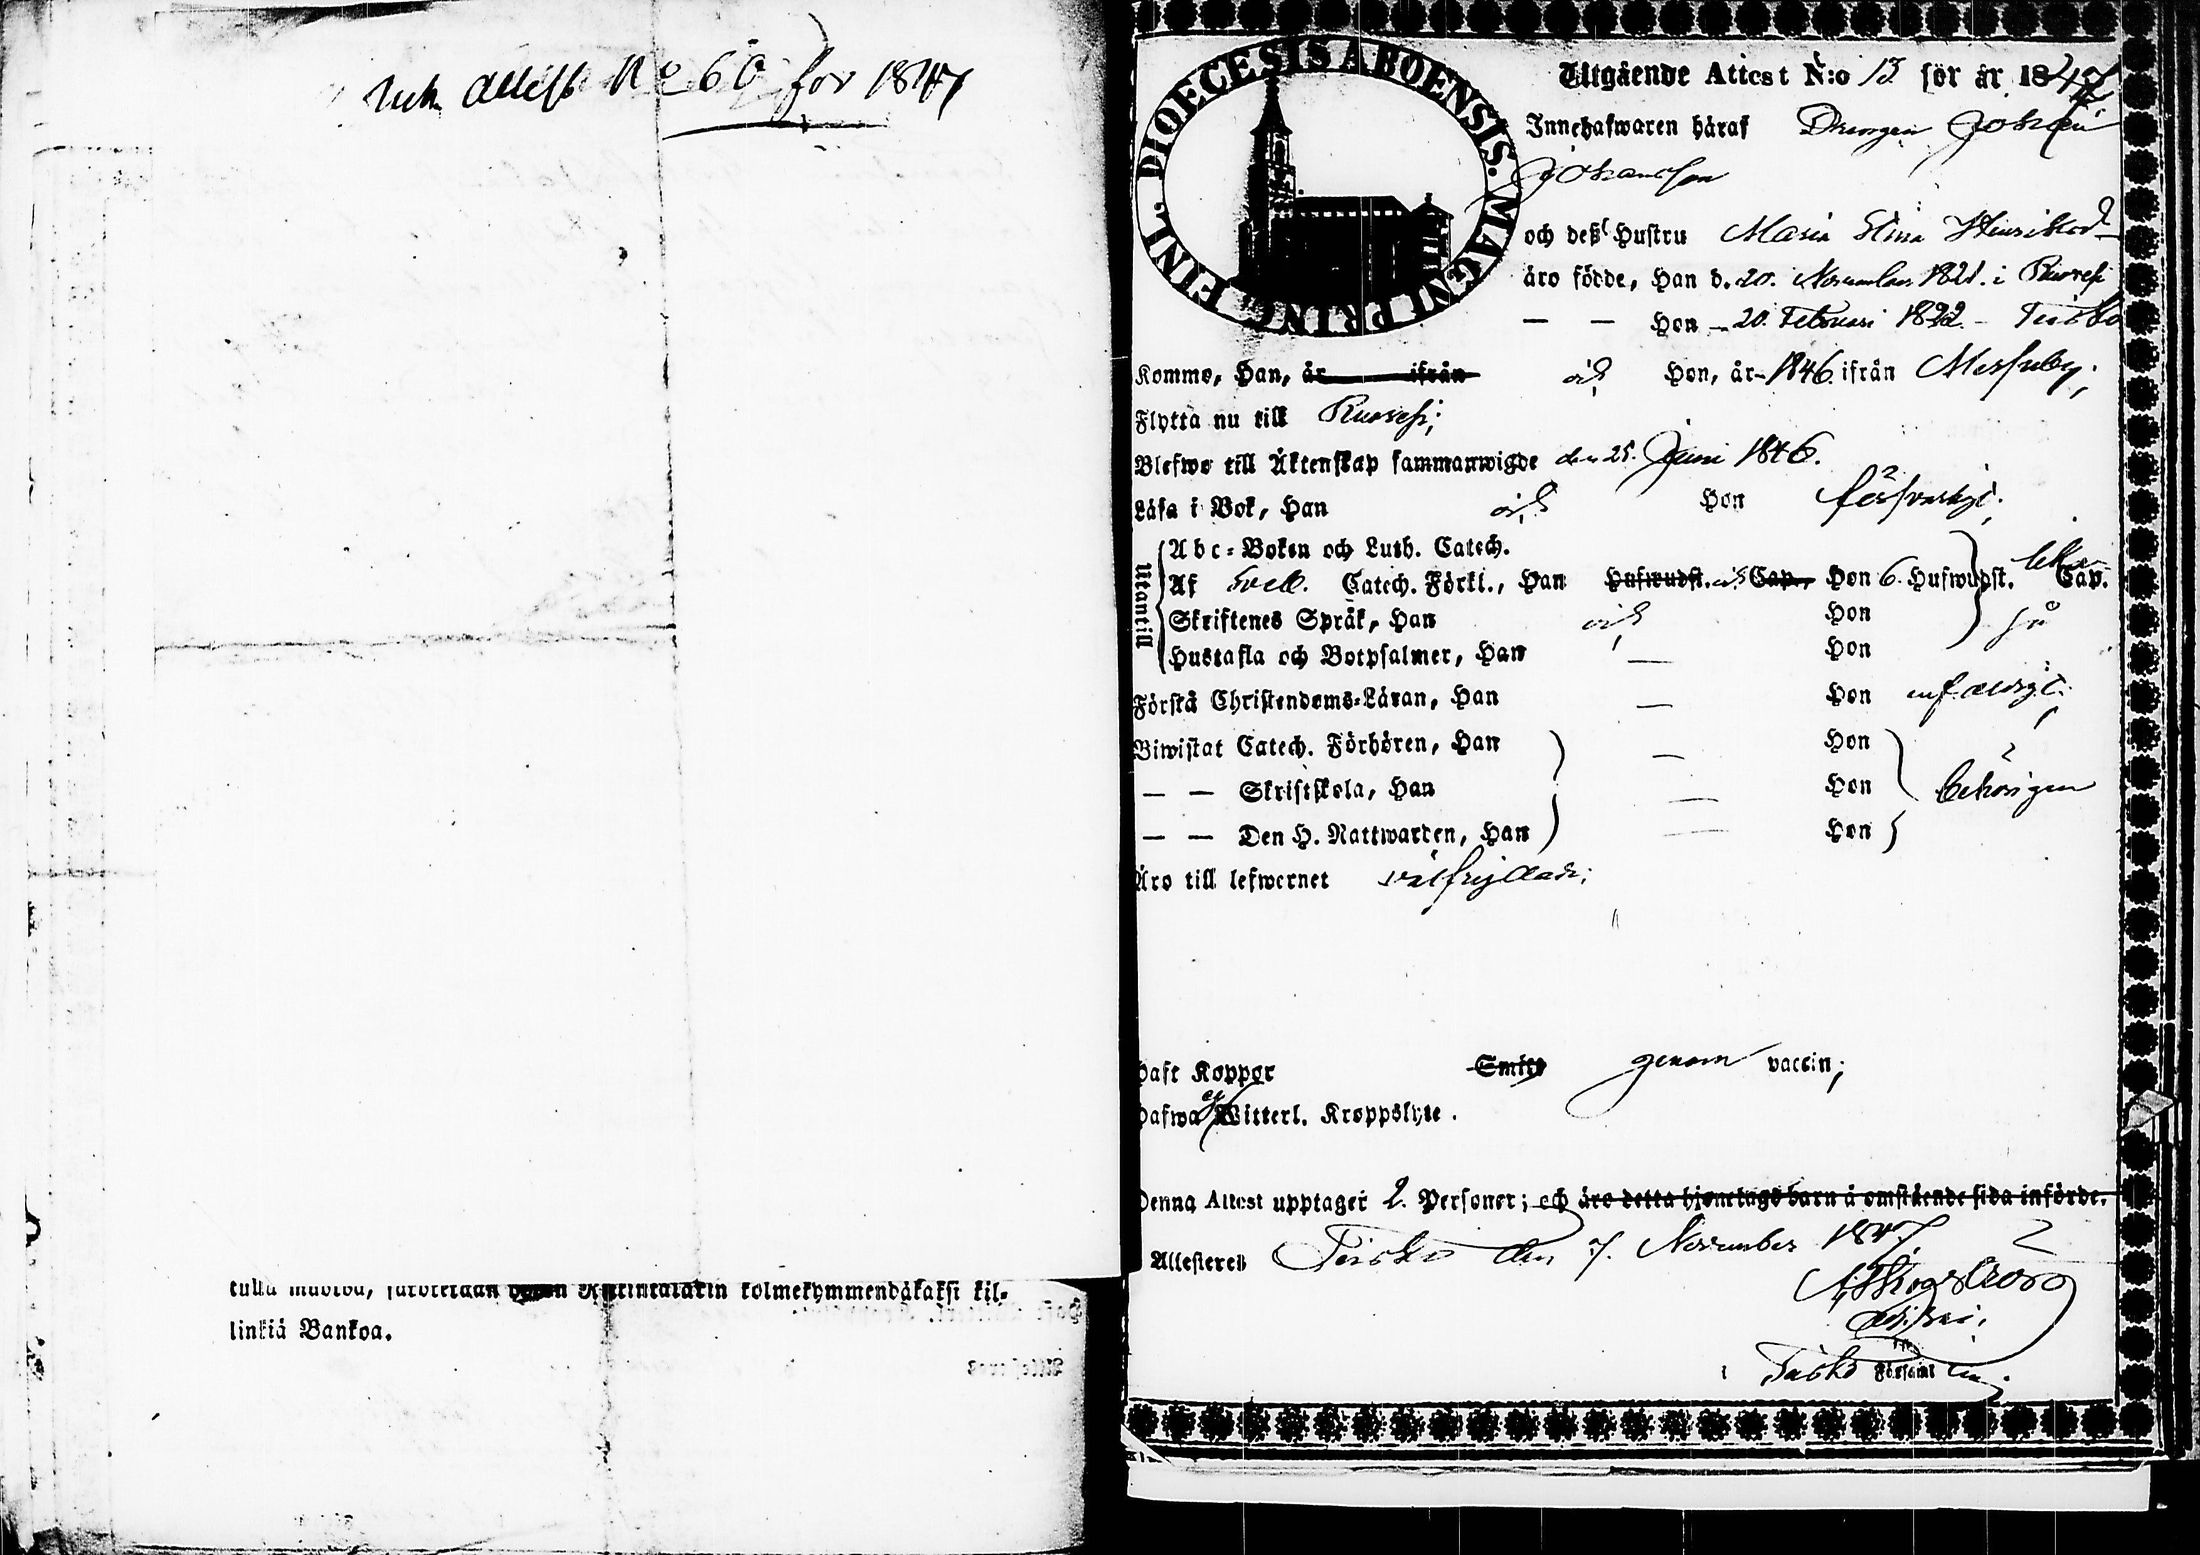 attest No 60 för 1847
tulla kolmekymmendäkaksi kil-
linkiä Bankoa.
FINL. DIOECESIS ABOENSIS. MAGNI PRINC.
Utgående Attest N:o 13 för år 1847
Innehafwaren häraf Drengen Johan
Johansson
och deß Hustru Maria Stina Henriksd
äro födde, Han d. 20. November 1821. i Ruovesi
— — Hon — 20. Februari 1822. - Teisko
Komme, Han, år ifrån och Hon, år 1846. ifrån Messuby;
Flytta nu till Ruovesi;
Blefwo till Äktenskap sammanwigde den 25. Juni 1846.
Läsa i Bok, Han och Hon försvarligt;
Utantill
Abc-Boken och Luth. Catech.
Af Sveb. Catech. Förkl., Han Hufwudst. Cap., Hon 6. Hufwudst. Cap.
Skriftenes Språk, Han och Hon så
Hustafla och Botpsalmer, Han — Hon
Förstå Christendoms-Läran, Han — Hon enfaldigt;
Biwistat Catech. Förhören, Han — Hon
— — Skriftskola, Han — Hon behörigen
— — Den H. Nattwarden, Han — Hon
Äro till lefwernet välfrejdade;
Haft Koppor Smitt genom vaccin;
Hafwa ej Witterl. Kroppslyte.
Denna Attest upptager 2. Personer; och äro detta hjonelags barn å omstående sida införde.
Attesteres Teisko den 7. November 1847
i Teisko Församling